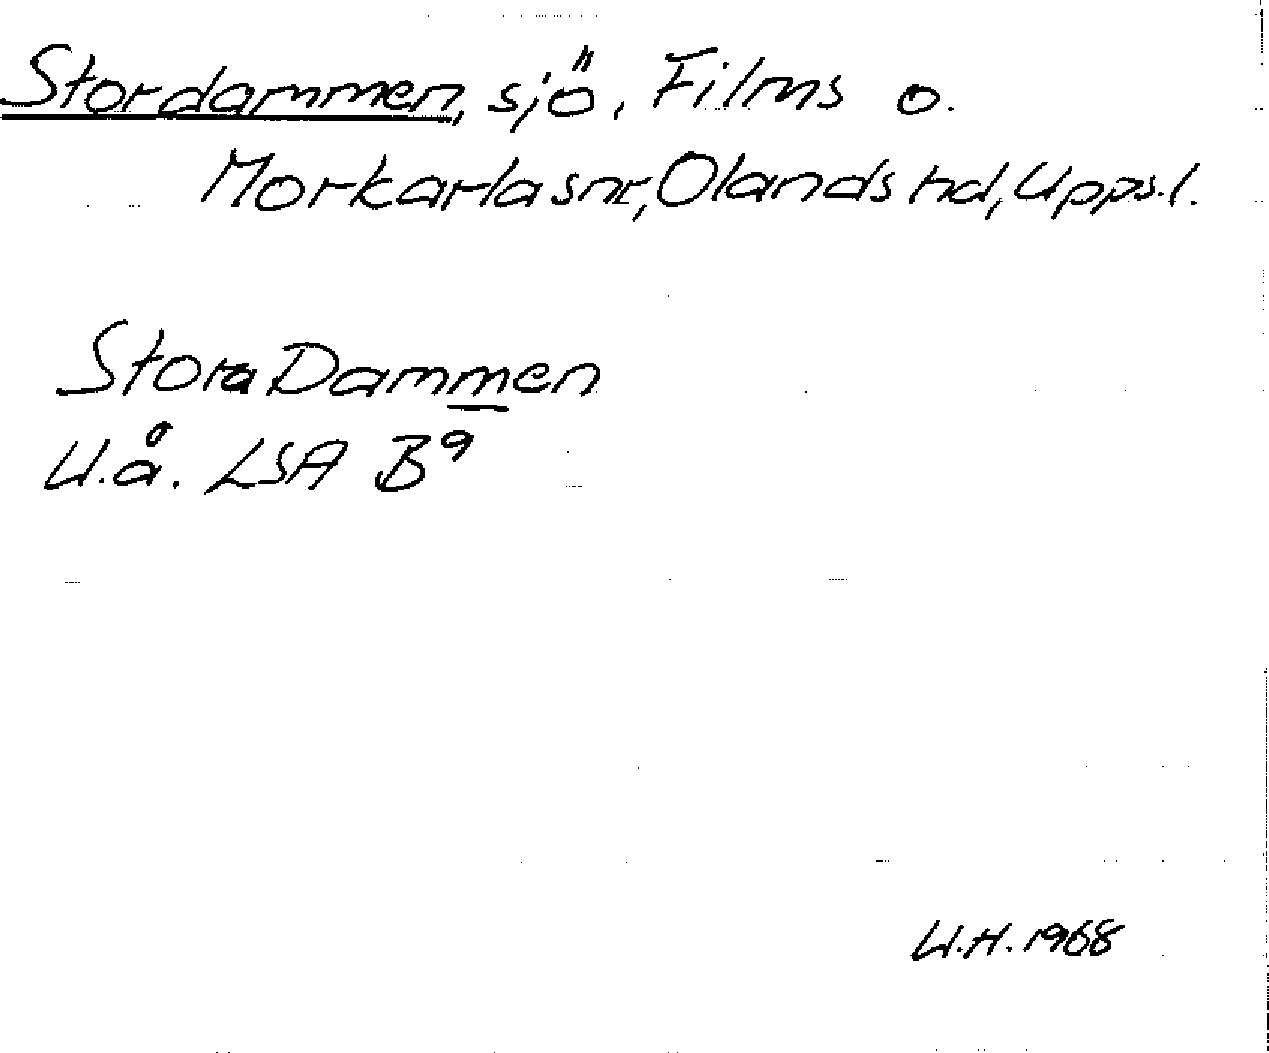 Stordammen, sjö, Films o.
Morkarla snr, Olands hd, Upps.l.
Stora Dammen
U.å. LSA B9
U.H. 1968